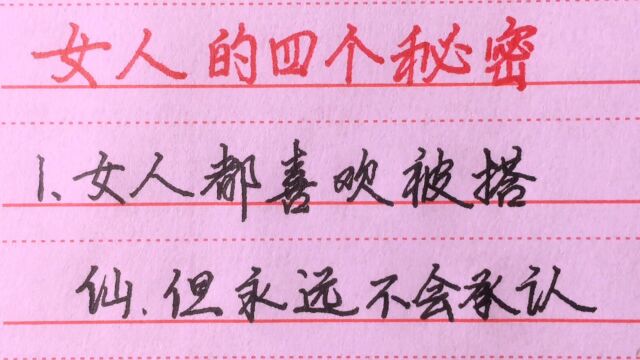 女人的四个秘密
1.女人都喜欢被搭
讪.但永远不会承认